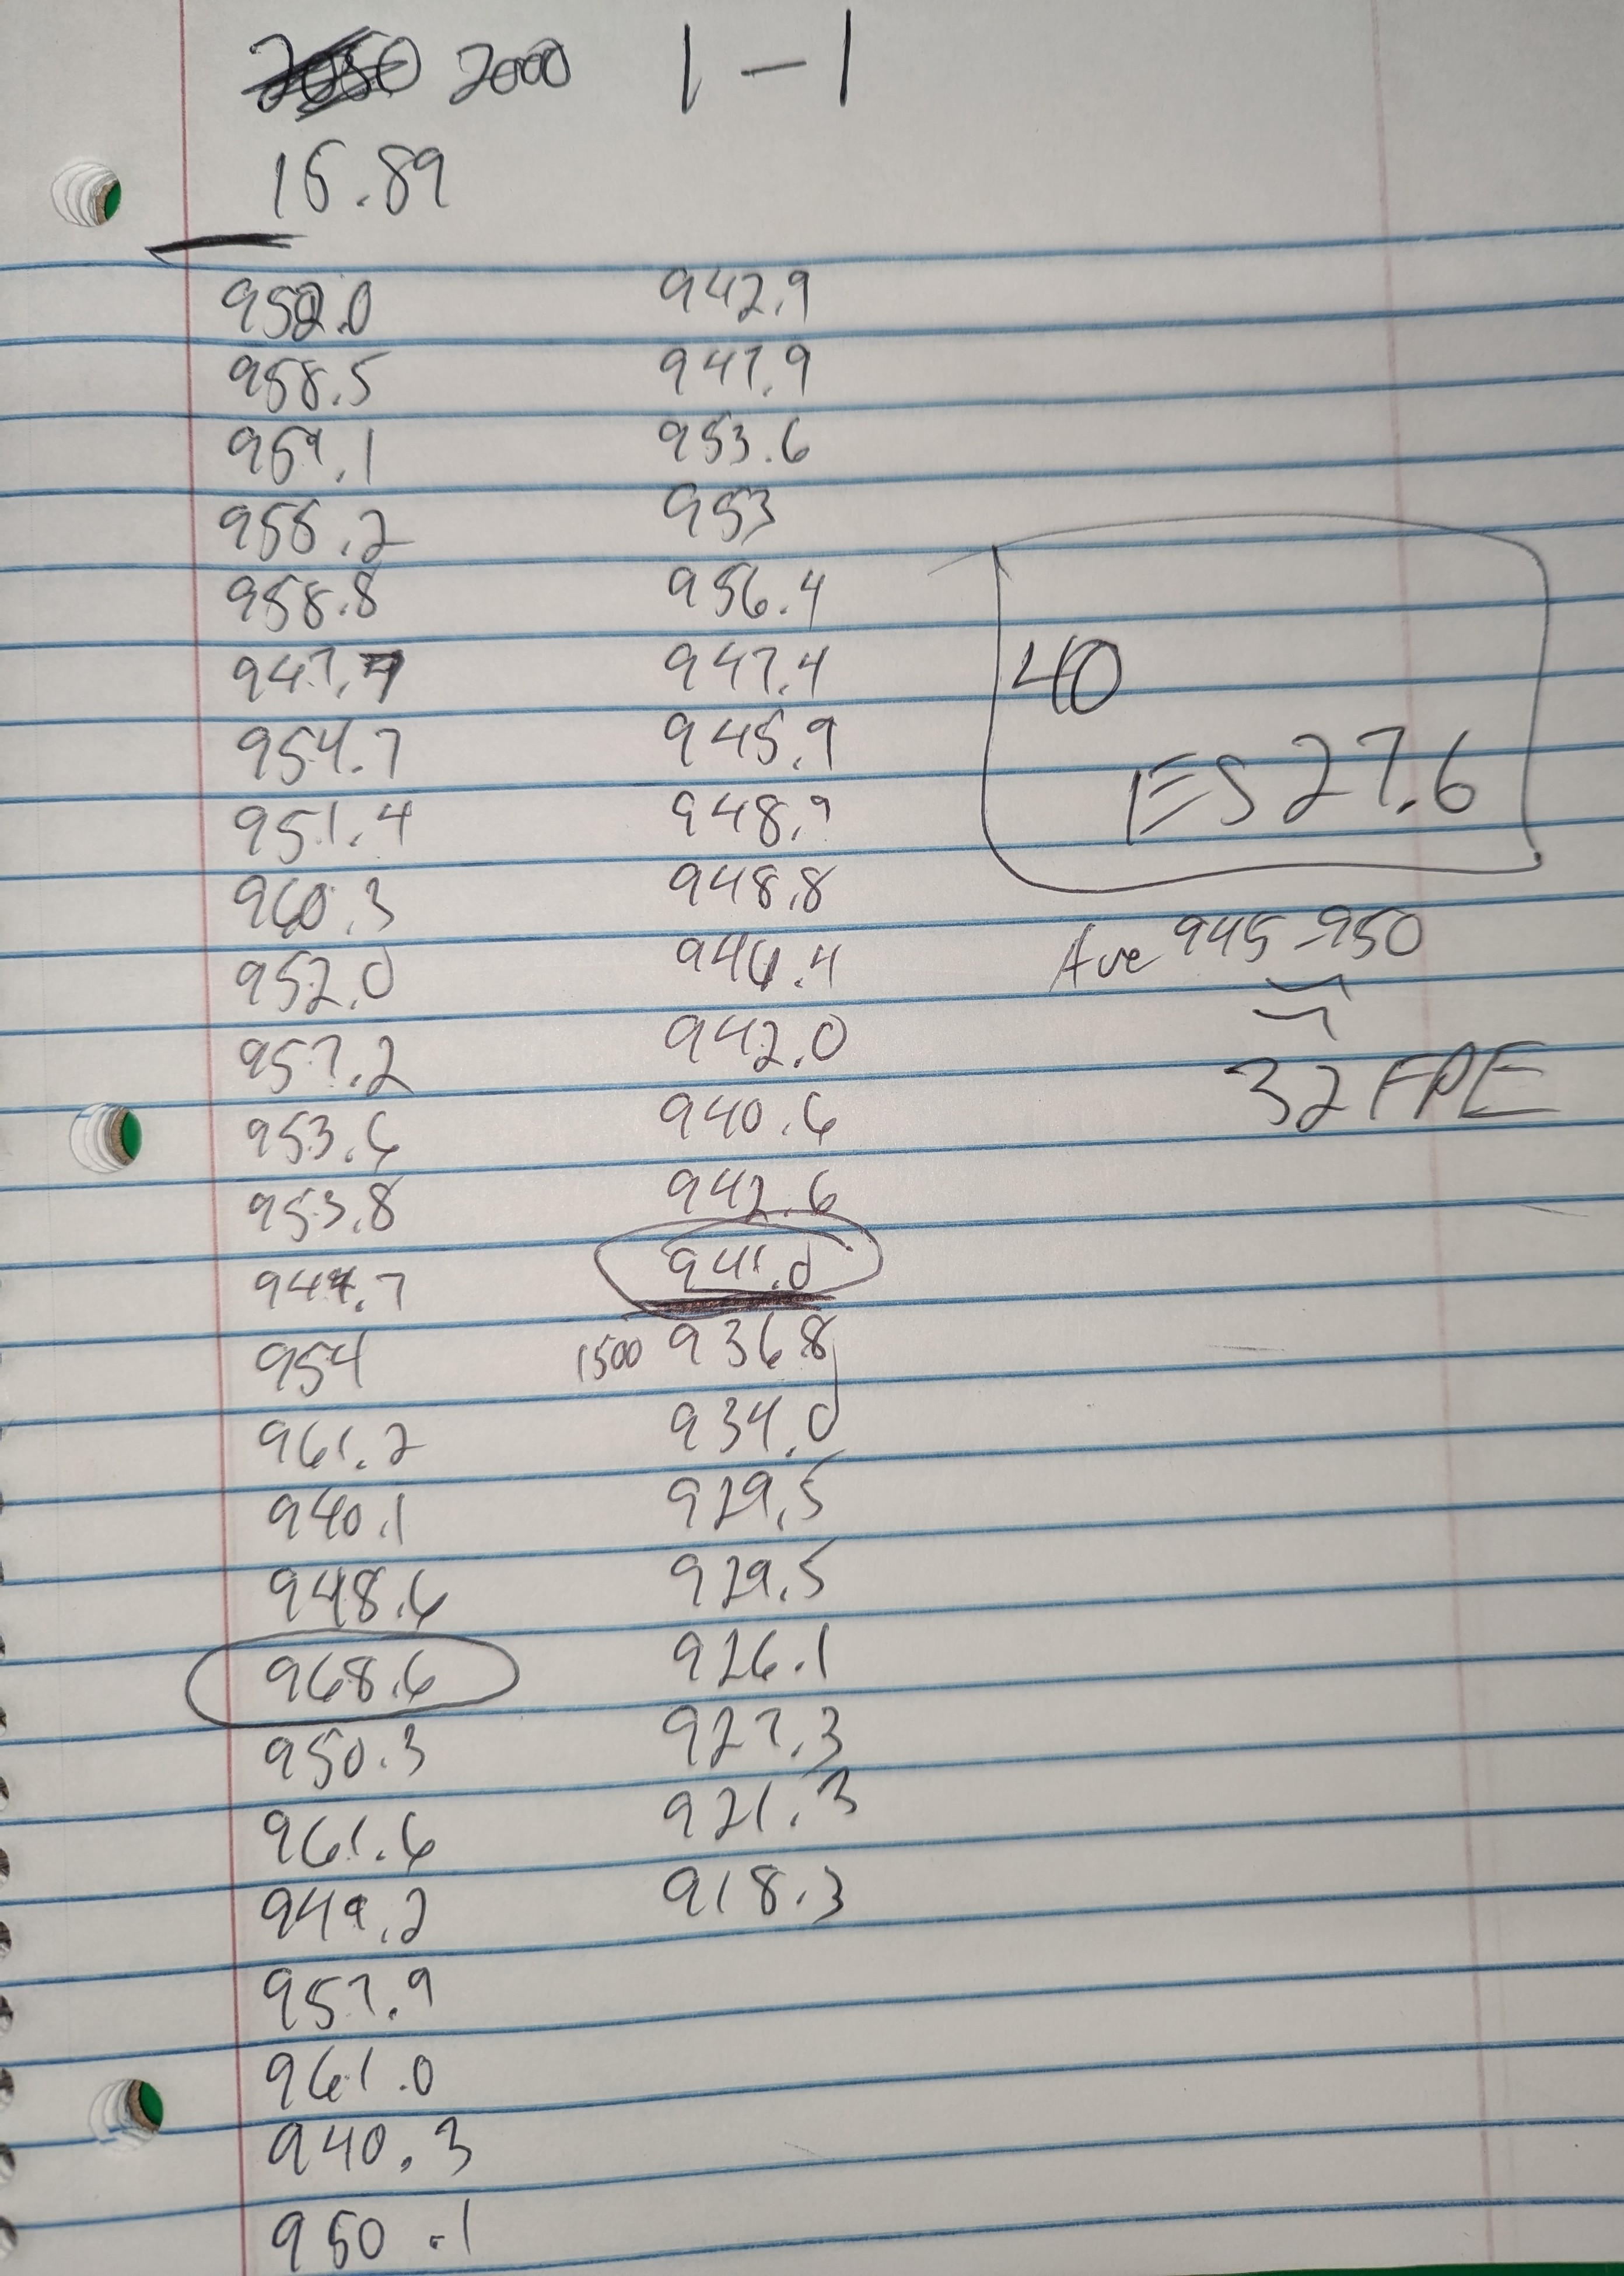 2000 1-1
16.89
952.0
958.5
959.1
956.2
958.8
947.7
954.7
951.4
960.3
952.0
957.2
953.6
953.8
944.7
954
961.2
940.1
948.6
968.6
950.3
961.6
949.2
957.9
961.0
940.3
950.1
942.9
947.9
953.6
953
956.4
947.4
945.9
948.9
948.8
946.4
942.0
940.6
942.6
941.0
1500 936.8
934.0
929.5
929.5
926.1
927.3
921.3
918.3
40
ES 27.6
Ave 945-950
32 FPE